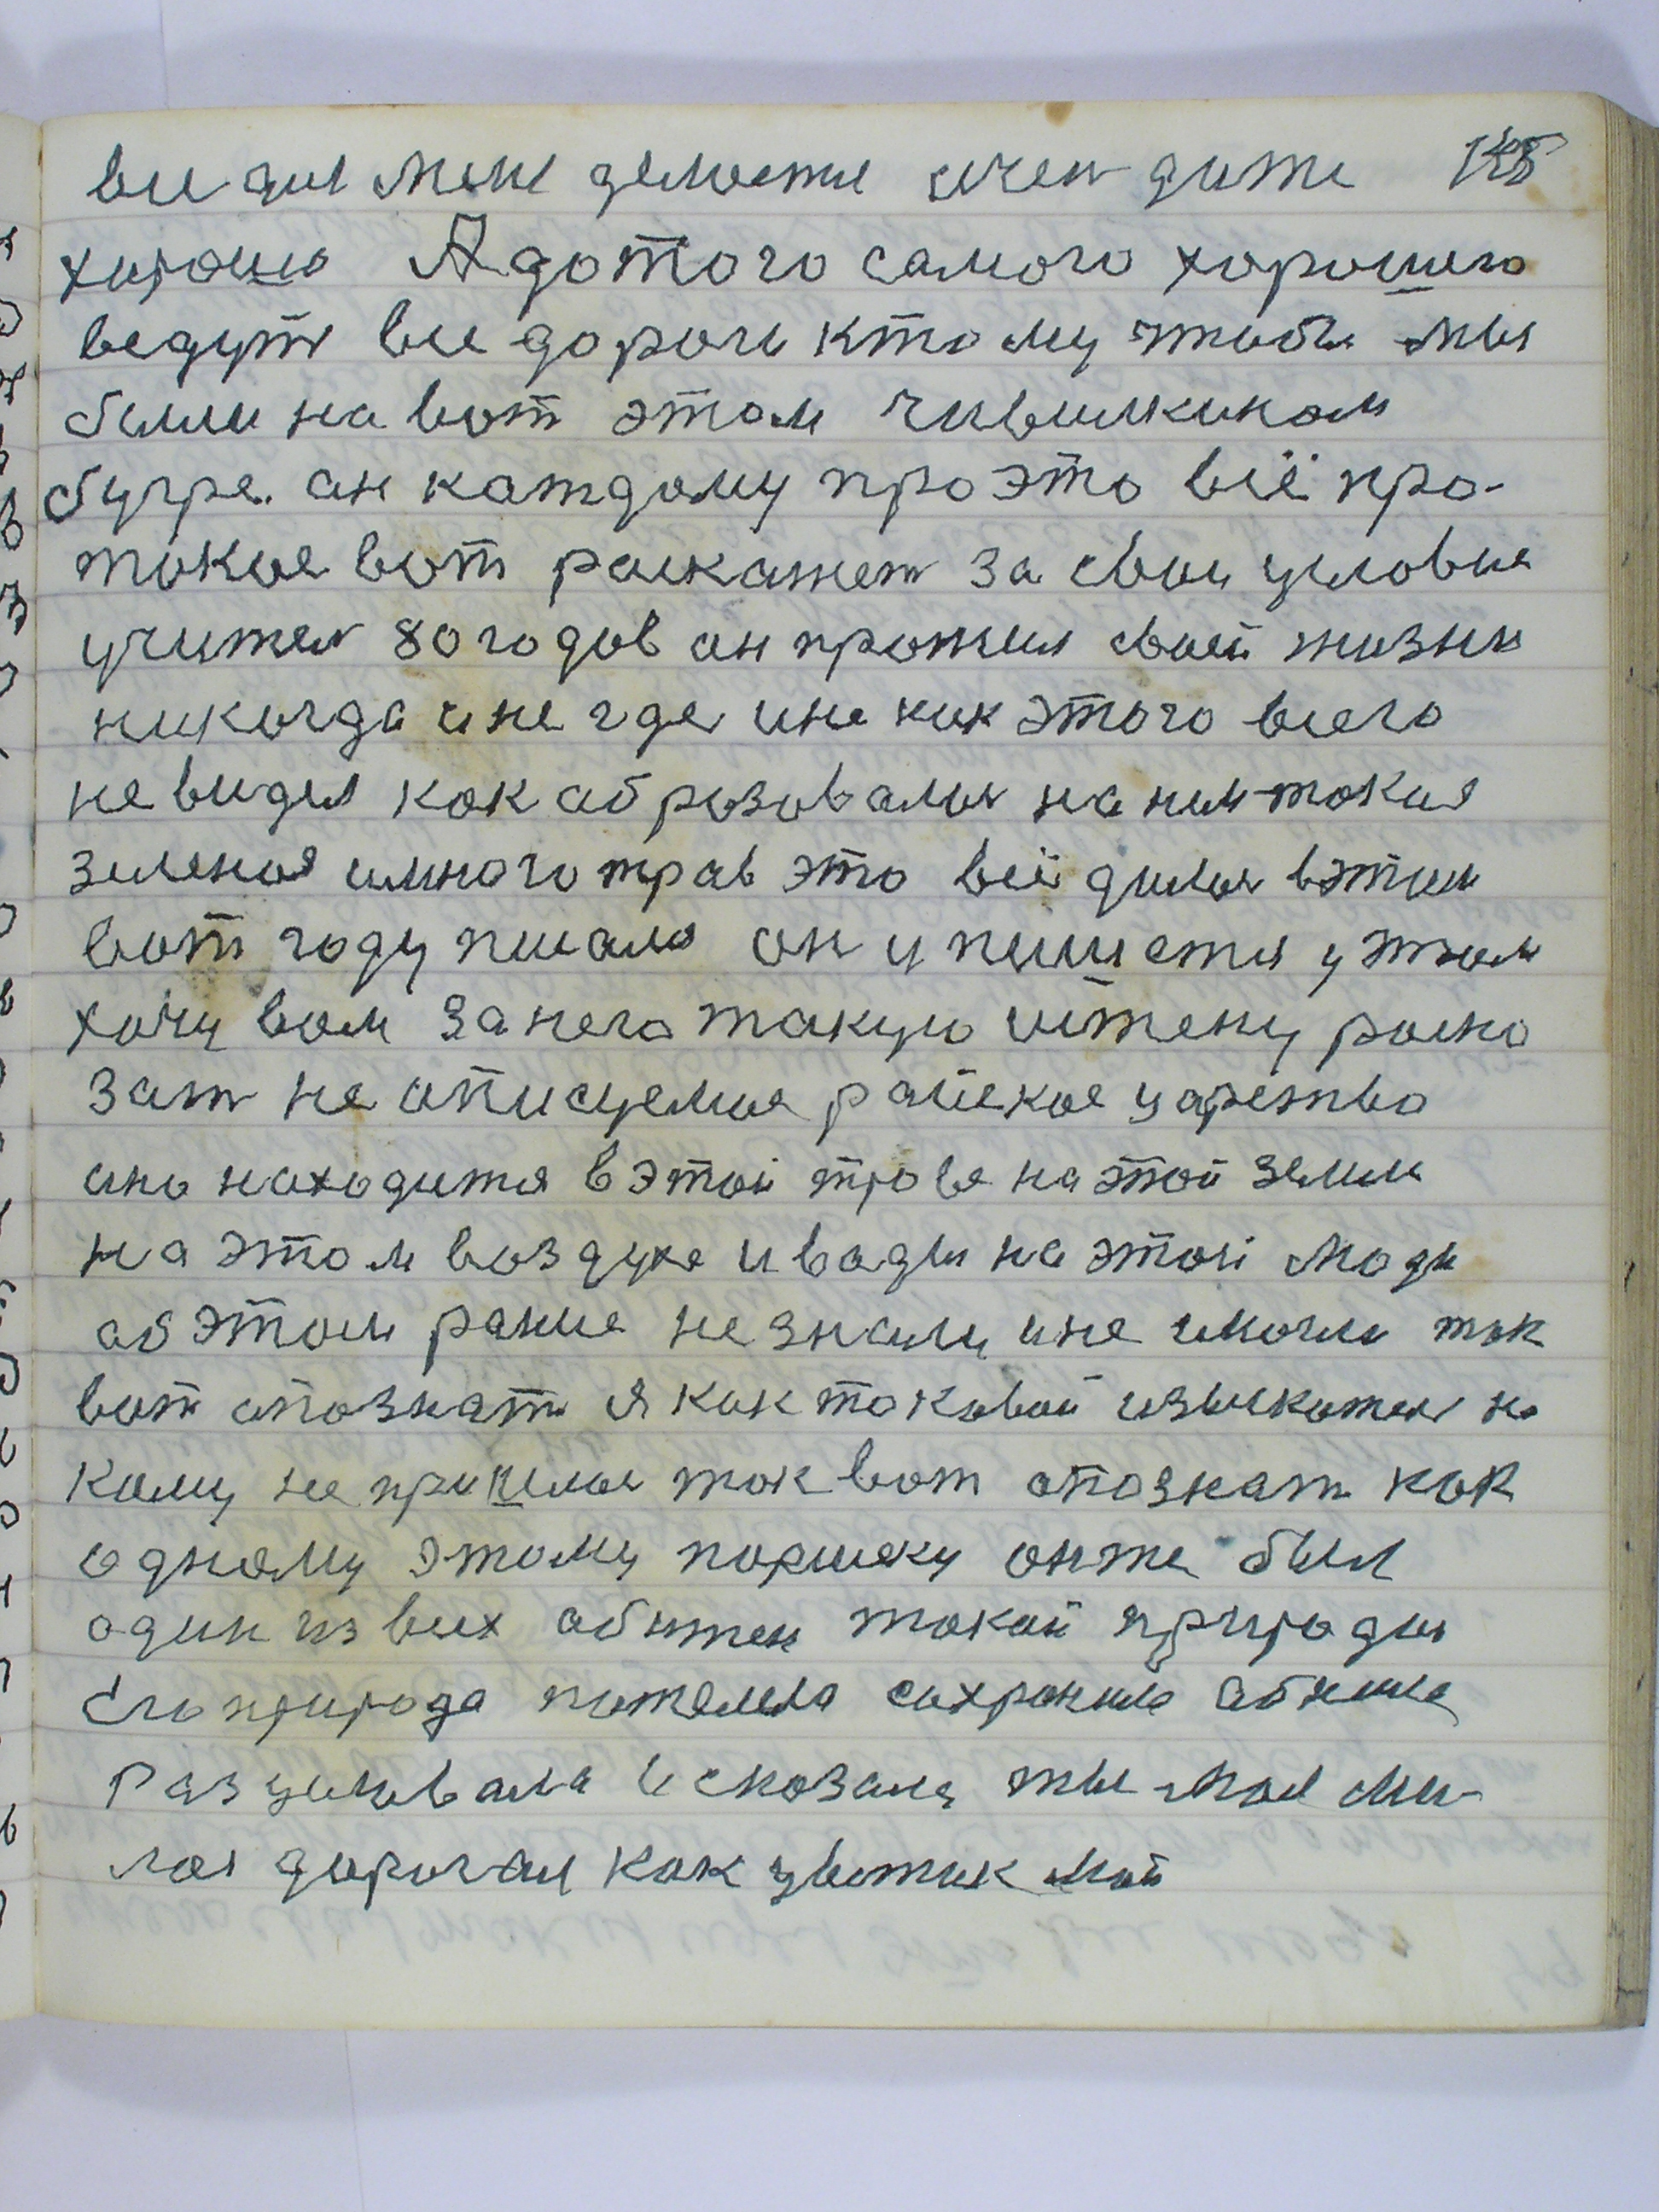 все для меня делается очен даже 145
хорошо А до того самого хорошего
ведут все дороги ктому чтобы мы
были на вот этом чивилкином
бугре. он каждому про это всё про
токое вот роскажет за свои условия
учител 80 годов он прожил своей жизни
никогда и не где и не как этого всего
не видел как образовалися на нем токия
зеленоя и много трав это всё дилося вэтим
вот году писало он у пишется у этом
хочу вам за него такую истену роска
зат не описуемое райское царство
оно находится в этой трове на этой земли
на этом воздухе и воды на этой моди
об этом раньше не знали и не могли так
вот опознат я как токовой изыскател не
кому не пришлося ток вот опознат как
одному этому поршеку онже был
один из всех обижен токой природы
Его природа пожалела сохранила обняла
Разцеловала и сказала ты моя ми-
лоя дорогая как цветик мой